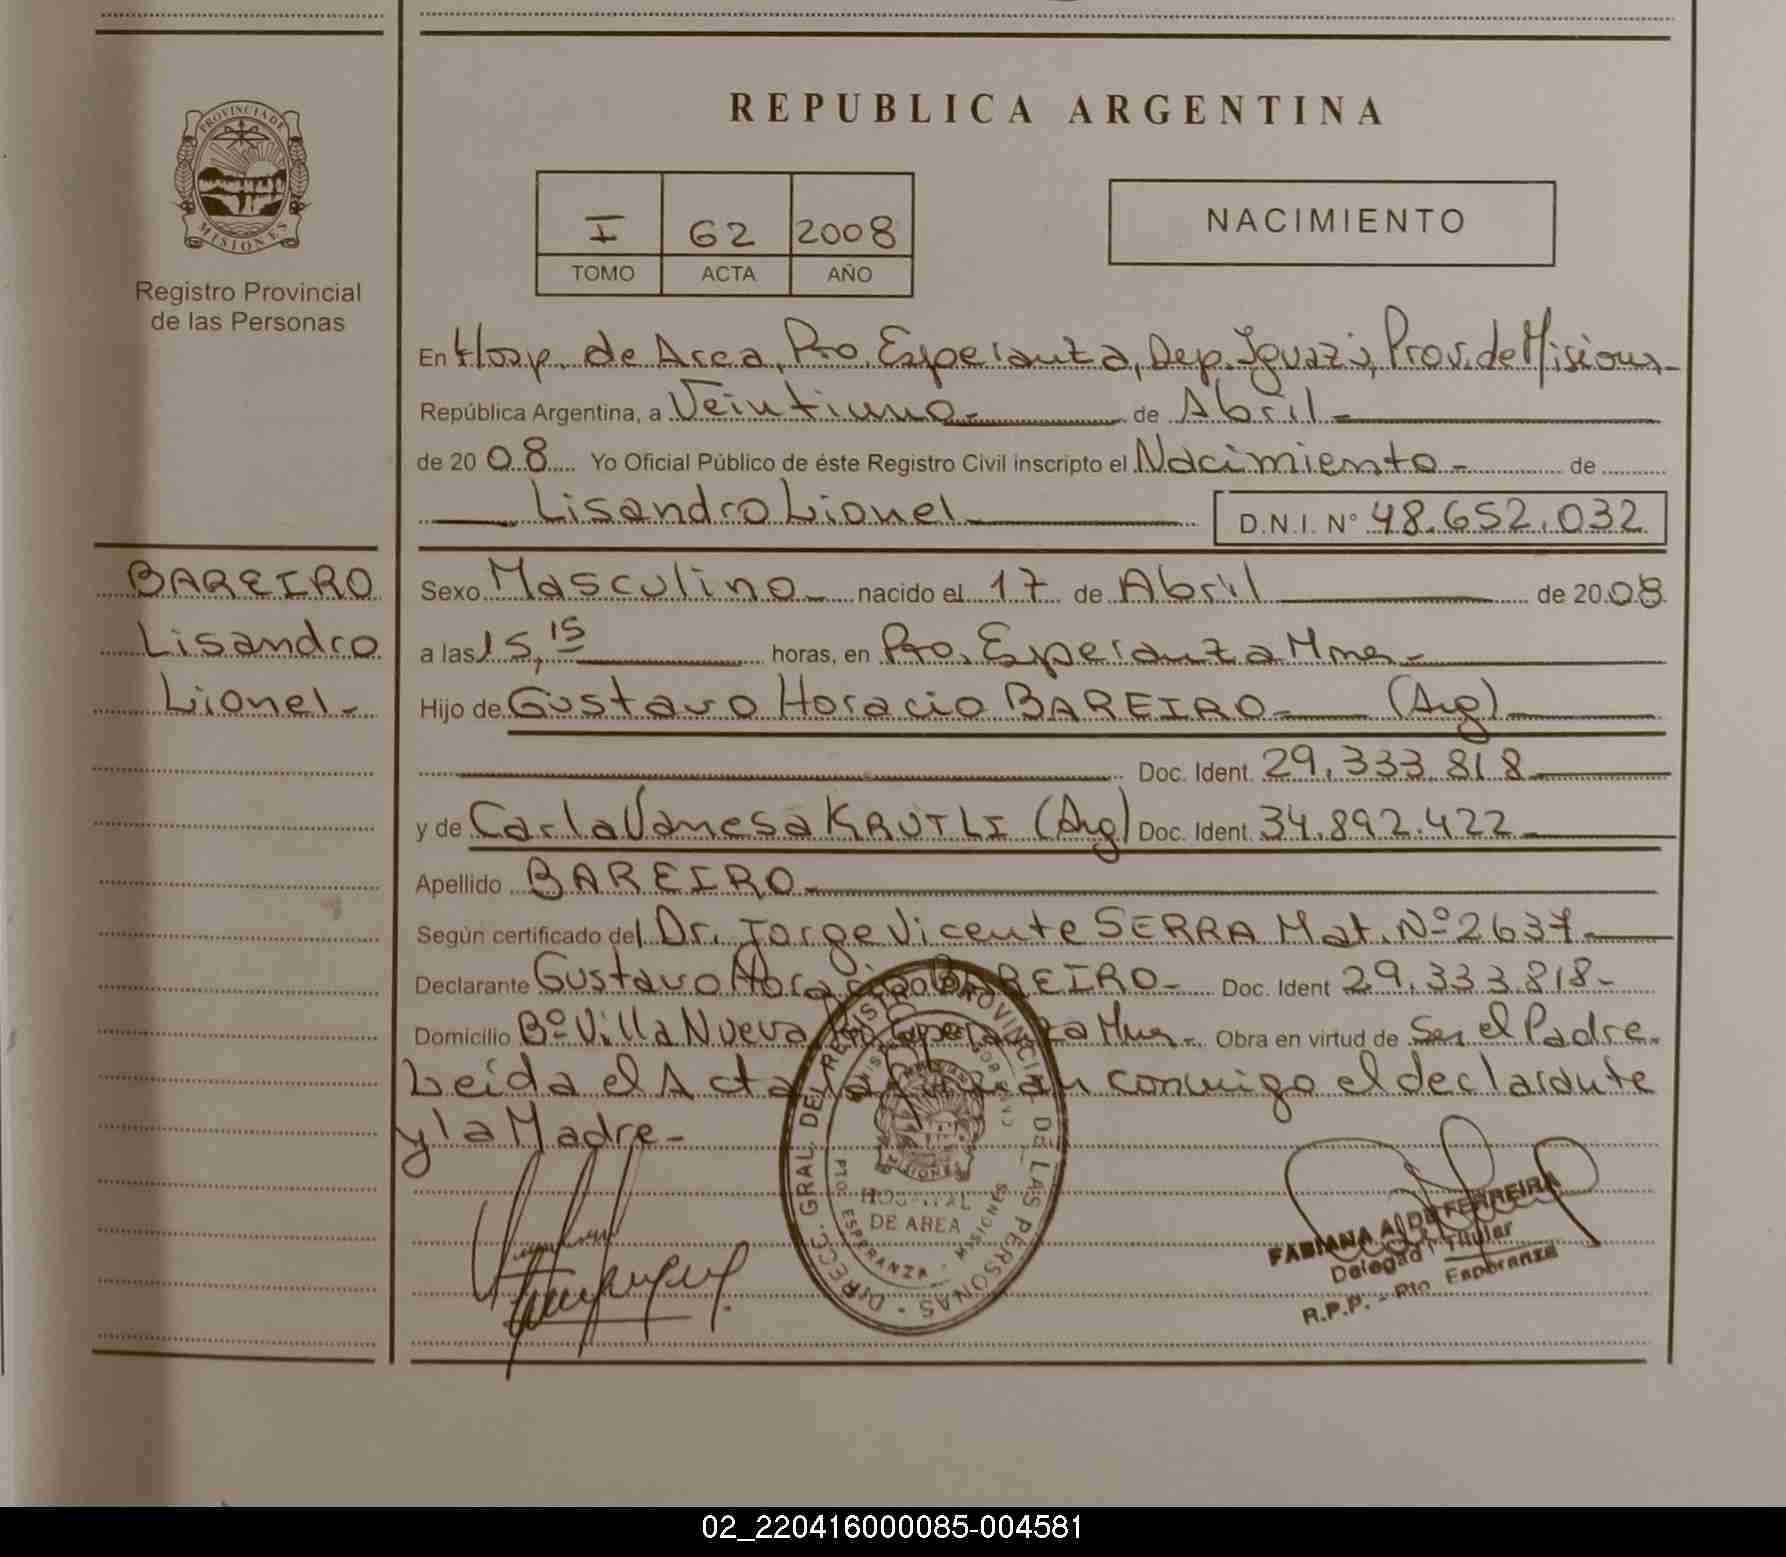 PROVINCIA DE
MISIONES
Registro Provincial
de las Personas
REPUBLICA ARGENTINA
I 62 2008
TOMO ACTA AÑO
NACIMIENTO
En Hosp. de Area, Pto. Esperanza, Dep. Iguazú, Prov. de Misiones-
República Argentina, a Veintiuno- de Abril-
de 2008 Yo Oficial Público de éste Registro Civil inscripto el Nacimiento- de
Lisandro Lionel D.N.I. N° 48.652.032
BAREIRO
Lisandro
Lionel-
Sexo Masculino- nacido el 17 de Abril de 2008
a las 15,15 horas, en Pto. Esperanza Mnes-
Hijo de Gustavo Horacio BAREIRO- (Arg)
Doc. Ident. 29.333.818
y de Carla Vanesa KRUTLI (Arg) Doc. Ident. 34.892.422
Apellido BAREIRO-
Según certificado del Dr. Jorge Vicente SERRA Mat. Nº 2637-
Declarante Gustavo Horacio BAREIRO- Doc. Ident 29.333.818-
Domicilio Bº Villa Nueva Pto Esperanza Mnes- Obra en virtud de Ser el Padre.
Leída el Acta la firman conmigo el declarante
y la Madre-
DIRECC. GRAL. DEL REGISTRO PROVINCIAL DE LAS PERSONAS
MISIONES
HOSPITAL
DE AREA
PTO. ESPERANZA - MISIONES
FABIANA A. DE FERREIRA
Delegada Titular
R.P.P. - Pto Esperanza
02_220416000085-004581